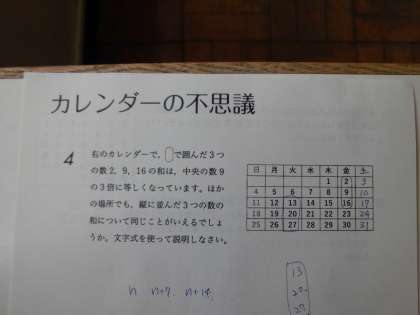 カレンダーの不思議
4
右のカレンダーで、 で囲んだ3つ
の数2, 9, 16の和は、中央の数9
の3倍に等しくなっています。ほか
の場所でも、縦に並んだ3つの数の
和について同じことがいえるでしょ
うか。文字式を使って説明しなさい。
日 月 火 水 木 金 土
1 2 3
4 5 6 7 8 9 10
11 12 13 14 15 16 17
18 19 20 21 22 23 24
25 26 27 28 29 30 31
n n+7. n+14.
13
20
27